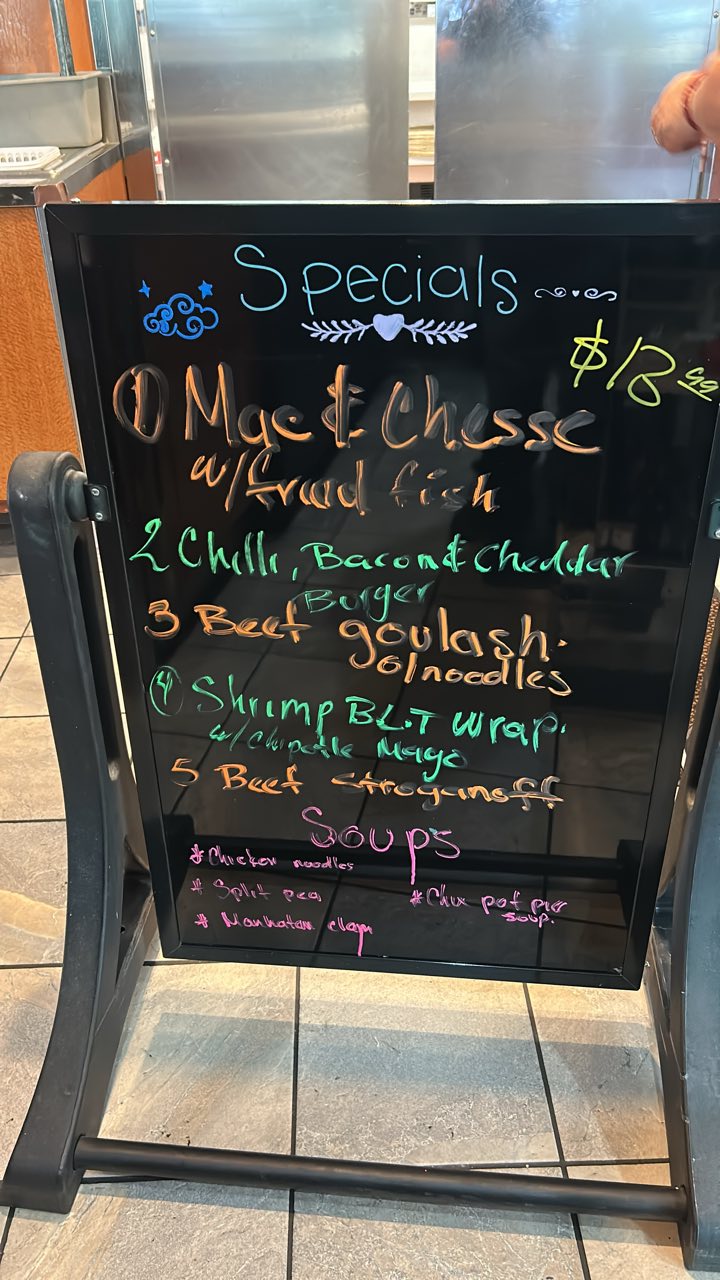 Specials
$13.99
① Mac & Chesse
w/fried fish
2 Chilli, Bacon & Cheddar
Burger
3 Beef goulash.
o/noodles
④ Shrimp BLT wrap.
w/Chipotle Mayo
5 Beef stroganoff
Soups
* Chicken noodles
* Split pea
* Chix pot pie
soup.
* Manhatan clam